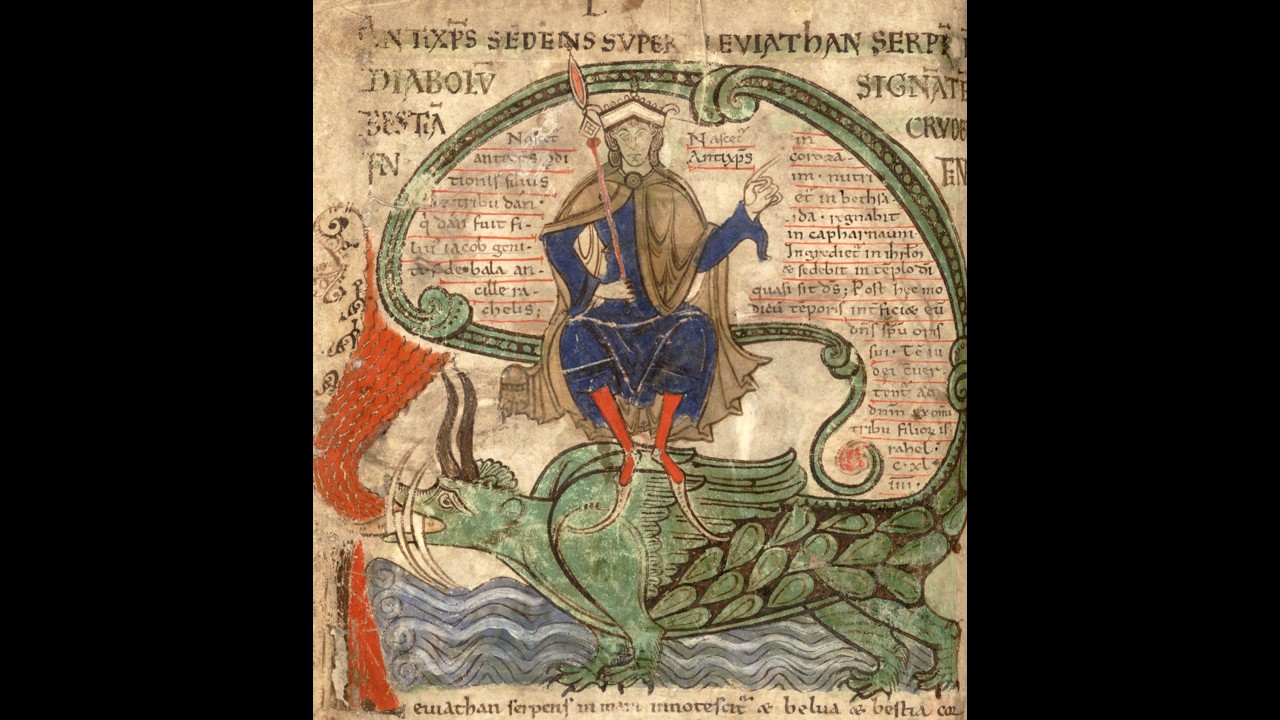 ANTIXP̄S SEDENS SVPER LEVIATHAN SERPE
DIABOLV̄ SIGNAT
BESTIĀ CRVDE
IN
Nascet̄
antixp̄s ꝑdi
tionis filius
de tribu dan·
q̄ dan fuit fi-
lius iacob geni-
tus de bala an-
cille ra-
chelis;
Nascet̄
Antixp̄s
in
coroza-
im· nutri
et̄ in bethsa-
ida· regnabit
in capharnaum·
Ingrediet̄ in ihrl̄m
& sedebit in tēplo d̄i
quasi sit d̄s; Post hęc mo
dicū tēporis int̄ficiæ eū
d̄ns sp̄u oris
sui·
tent̄ ad
dn̄m
tribu filioꝝ is
rahel·
c·xl
iiii·
Leuiathan serpens in mari innotescit̄ & belua & bestia